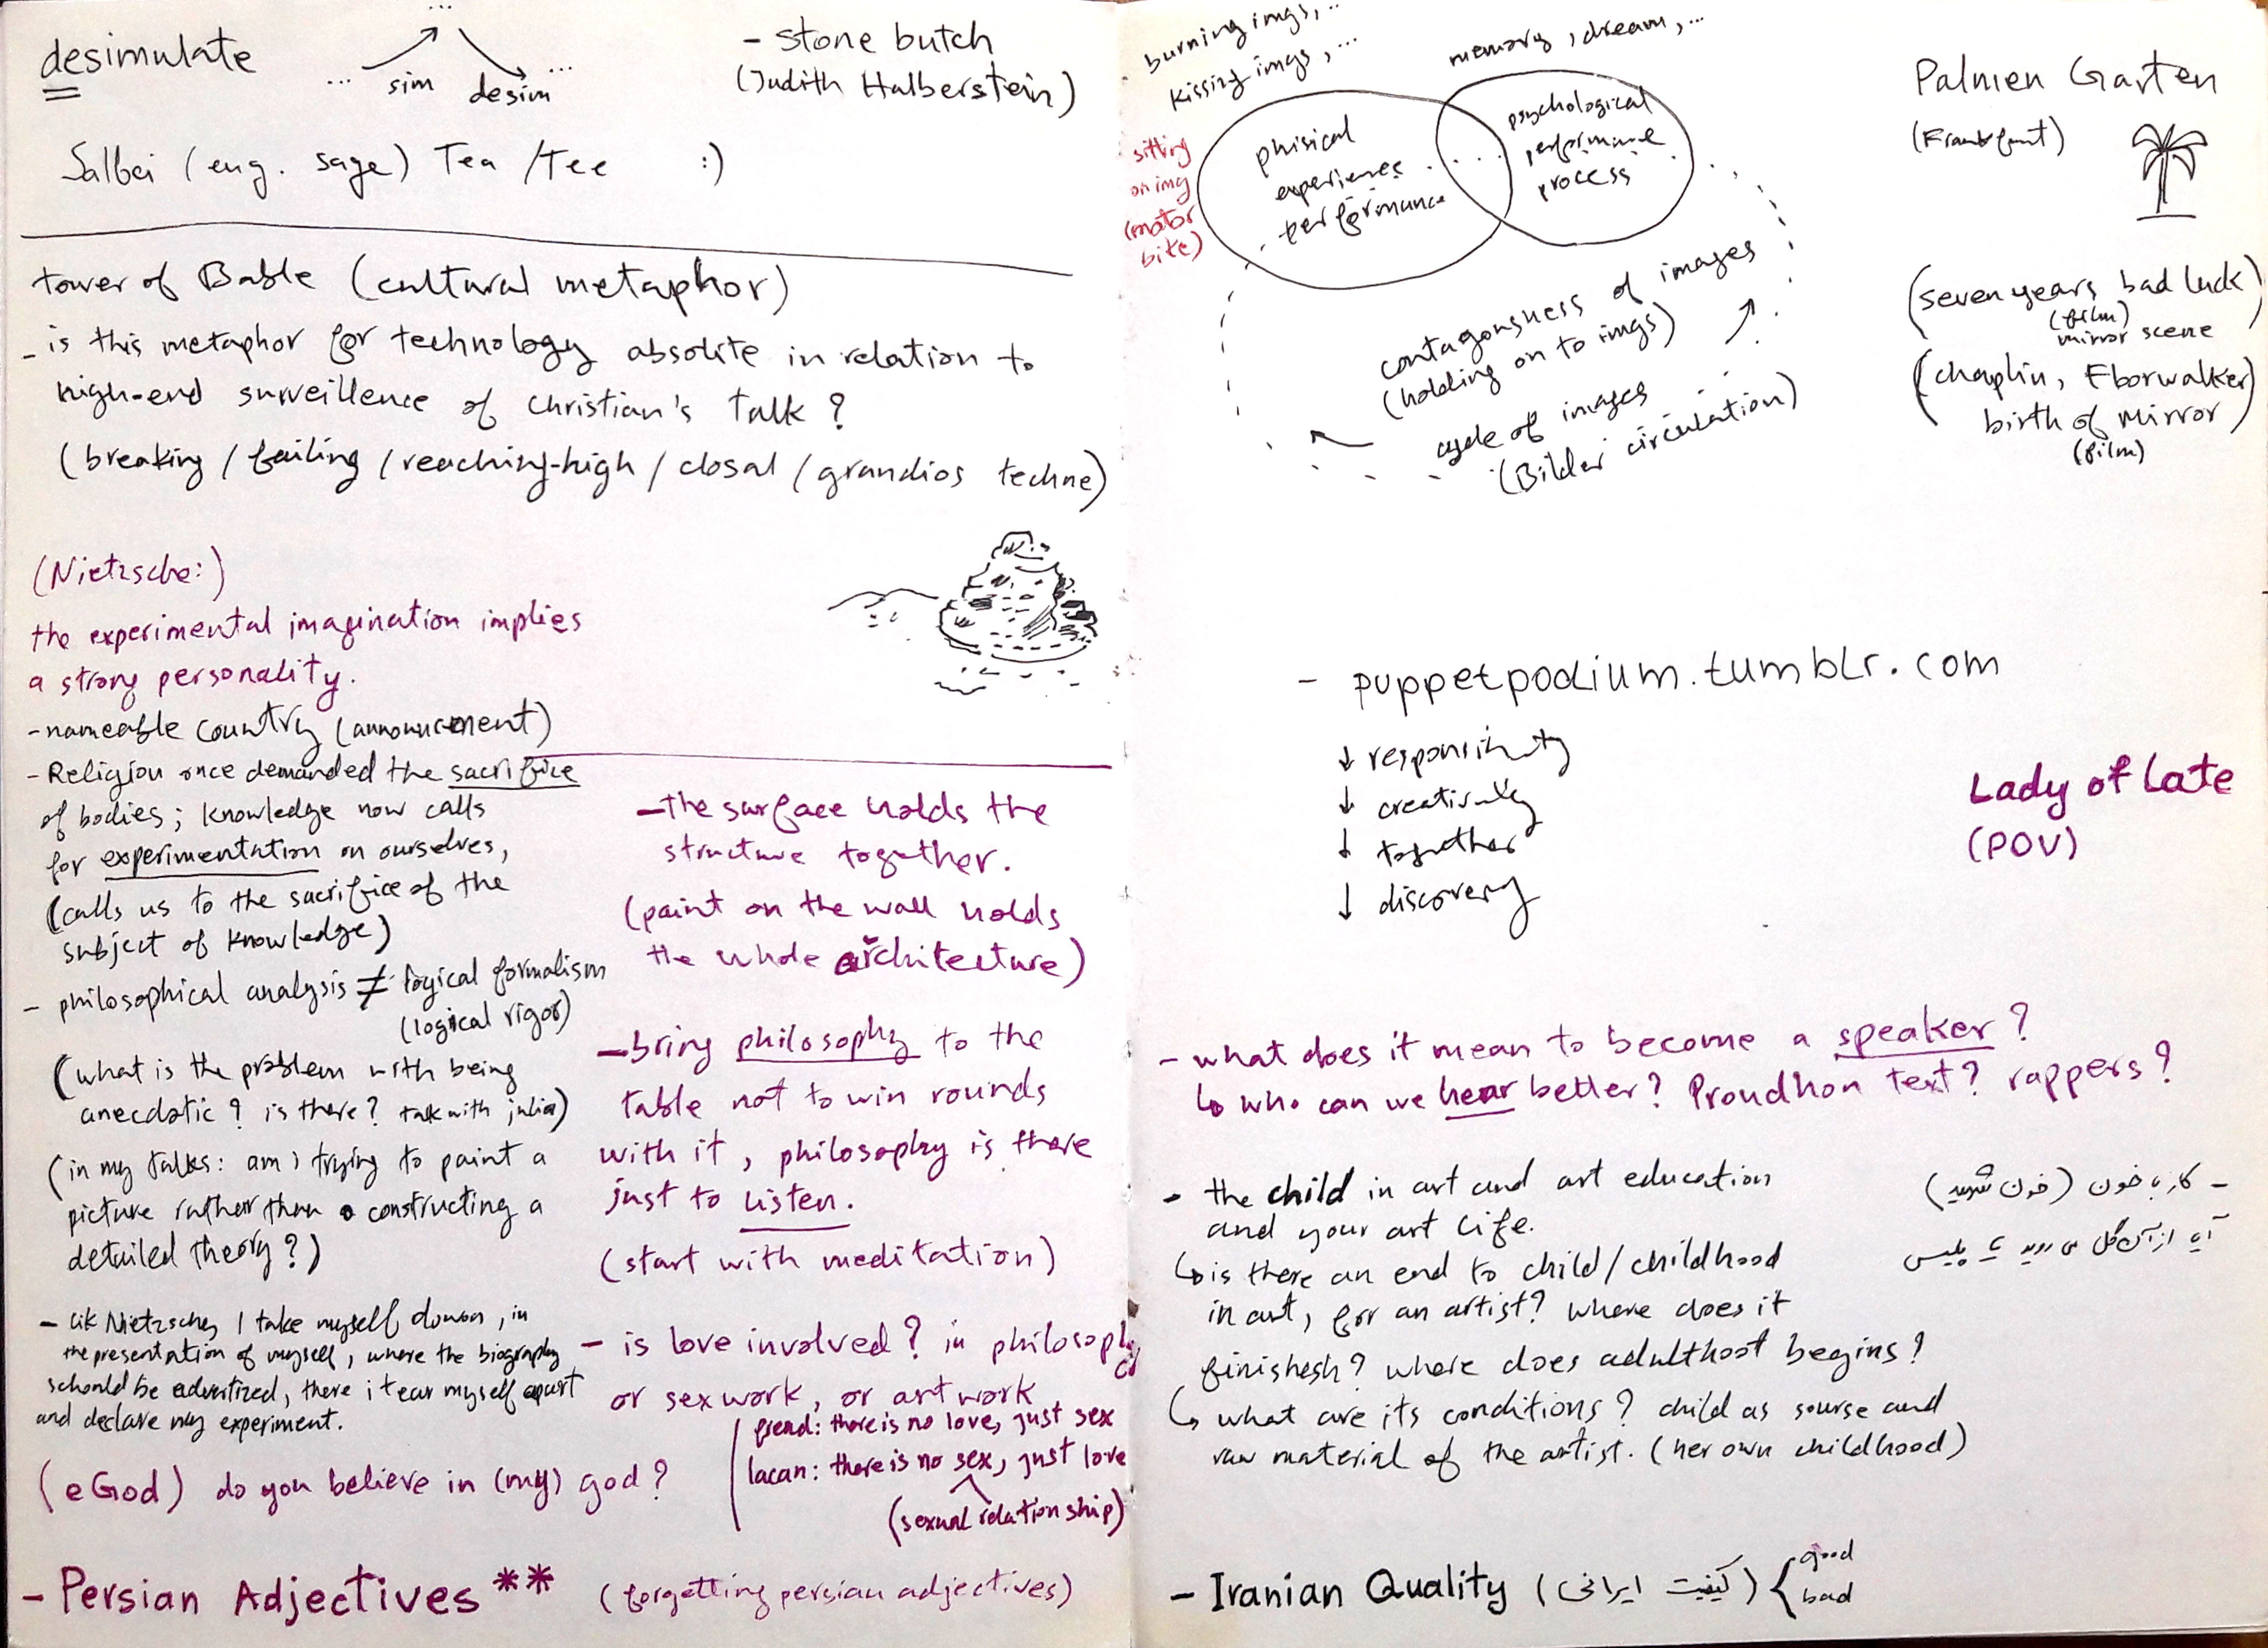 desimulate
...
... sim desim ...
- stone butch
(Judith Halberstein)
Salbei (eng. sage) Tea /Tee :)
tower of Bable (cultural metaphor)
- is this metaphor for technology absolite in relation to
high-end surveillence of Christian's talk?
(breaking / failing / reaching-high / closal / grandios techne)
(Nietzsche:)
the experimental imagination implies
a strong personality.
- nameable country (announcement)
- Religion once demanded the sacrifice
of bodies; knowledge now calls
for experimentation on ourselves,
(calls us to the sacrifice of the
subject of knowledge)
- philosophical analysis ≠ logical formalism
(logical rigor)
(what is the problem with being
anecdotic? is there? talk with julia)
(in my talks: am i trying to paint a
picture rather than constructing a
detailed theory?)
- lik Nietzsche, I take myself down, in
the presentation of myself, where the biography
schould be advertized, there i tear myself apart
and declare my experiment.
(eGod) do you believe in (my) god?
- Persian Adjectives** (forgetting persian adjectives)
- the surface holds the
structure together.
(paint on the wall holds
the whole architecture)
- bring philosophy to the
table not to win rounds
with it, philosophy is there
just to listen.
(start with meditation)
- is love involved? in philosophy
or sexwork, or artwork
freud: there is no love, just sex
lacan: there is no sex, just love
(sexual relationship)
burning imgs, ..
kissing imgs, ...
memory, dream, ...
sitting
on img
(motor
bike)
phisical
experiences
performance
...
psychological
performance
process
contagonsness of images
(holding on to imgs)
cycle of images
(Bilder circulation)
Palmen Garten
(Frankfurt)
(seven years bad luck)
(film)
mirror scene
(chaplin, Eborwalker)
birth of mirror
(film)
- puppetpodium.tumblr.com
↓ responsibility
↓ creativity
↓ together
↓ discovery
Lady of Late
(POV)
- what does it mean to become a speaker?
↳ who can we hear better? Proudhon text? rappers?
- the child in art and art education
and your art life.
↳ is there an end to child/childhood
in art, for an artist? where does it
finishesh? where does adulthoot begins?
↳ what are its conditions? child as sourse and
raw material of the artist. (her own childhood)
- کار با خون (خون شهید)
آیا از آن گل می روید یا پلیس
- Iranian Quality (کیفیت ایرانی) { good
bad